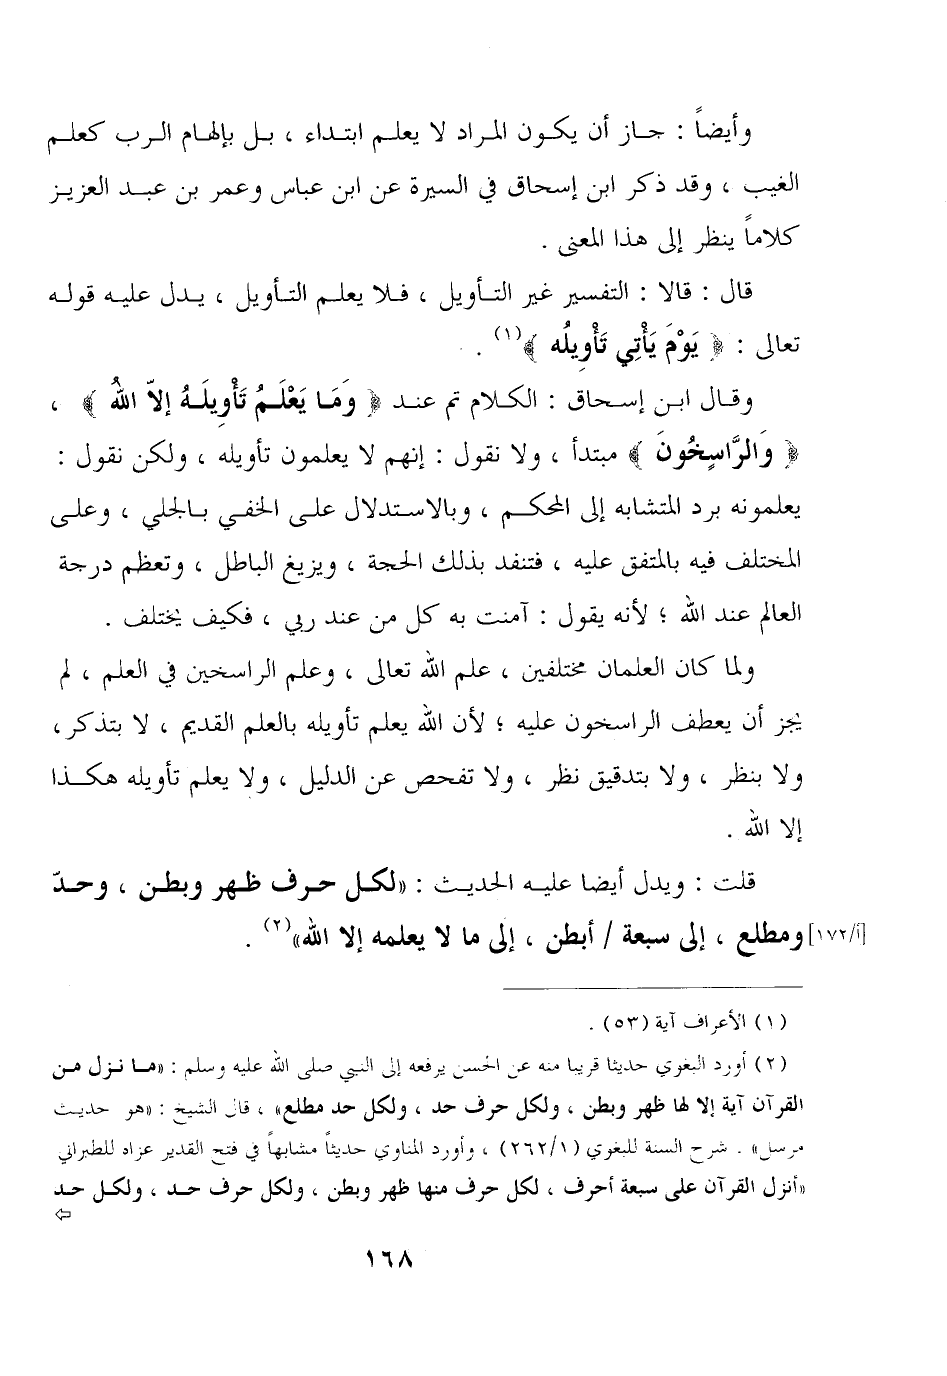 وأيضاً : جاز أن يكون المراد لا يعلم ابتداء ، بل بإلهام الرب كعلم
الغيب ، وقد ذكر ابن إسحاق في السيرة عن ابن عباس وعمر بن عبد العزيز
كلاماً ينظر إلى هذا المعنى .
قال : قالا : التفسير غير التأويل ، فلا يعلم التأويل ، يدل عليه قوله
تعالى : ﴿ يَوْمَ يَأْتِي تَأْوِيلُه ﴾(١) .
وقال ابن إسحاق : الكلام تم عند ﴿ وَمَا يَعْلَمُ تَأْوِيلَهُ إلاّ اللهُ ﴾ ،
﴿ وَالرَّاسِخُونَ ﴾ مبتدأ ، ولا نقول : إنهم لا يعلمون تأويله ، ولكن نقول :
يعلمونه برد المتشابه إلى المحكم ، وبالاستدلال على الخفي بالجلي ، وعلى
المختلف فيه بالمتفق عليه ، فتنفد بذلك الحجة ، ويزيغ الباطل ، وتعظم درجة
العالم عند الله ؛ لأنه يقول : آمنت به كل من عند ربي ، فكيف يختلف .
ولما كان العلمان مختلفين ، علم الله تعالى ، وعلم الراسخين في العلم ، لم
يجز أن يعطف الراسخون عليه ؛ لأن الله يعلم تأويله بالعلم القديم ، لا بتذكر ،
ولا بنظر ، ولا بتدقيق نظر ، ولا تفحص عن الدليل ، ولا يعلم تأويله هكذا
إلا الله .
قلت : ويدل أيضا عليه الحديث : «لكل حرف ظهر وبطن ، وحدّ
[١٧٢/أ] ومطلع ، إلى سبعة / أبطن ، إلى ما لا يعلمه إلا الله»(٢) .
(١) الأعراف آية (٥٣) .
(٢) أورد البغوي حديثا قريبا منه عن الحسن يرفعه إلى النبي صلى الله عليه وسلم : «ما نزل من
القرآن آية إلا لها ظهر وبطن ، ولكل حرف حد ، ولكل حد مطلع» ، قال الشيخ : «هو حديث
مرسل» . شرح السنة للبغوي (٢٦٢/١) ، وأورد المناوي حديثاً مشابهاً في فتح القدير عزاه للطبراني
«أنزل القرآن على سبعة أحرف ، لكل حرف منها ظهر وبطن ، ولكل حرف حد ، ولكل حد
⇦
١٦٨